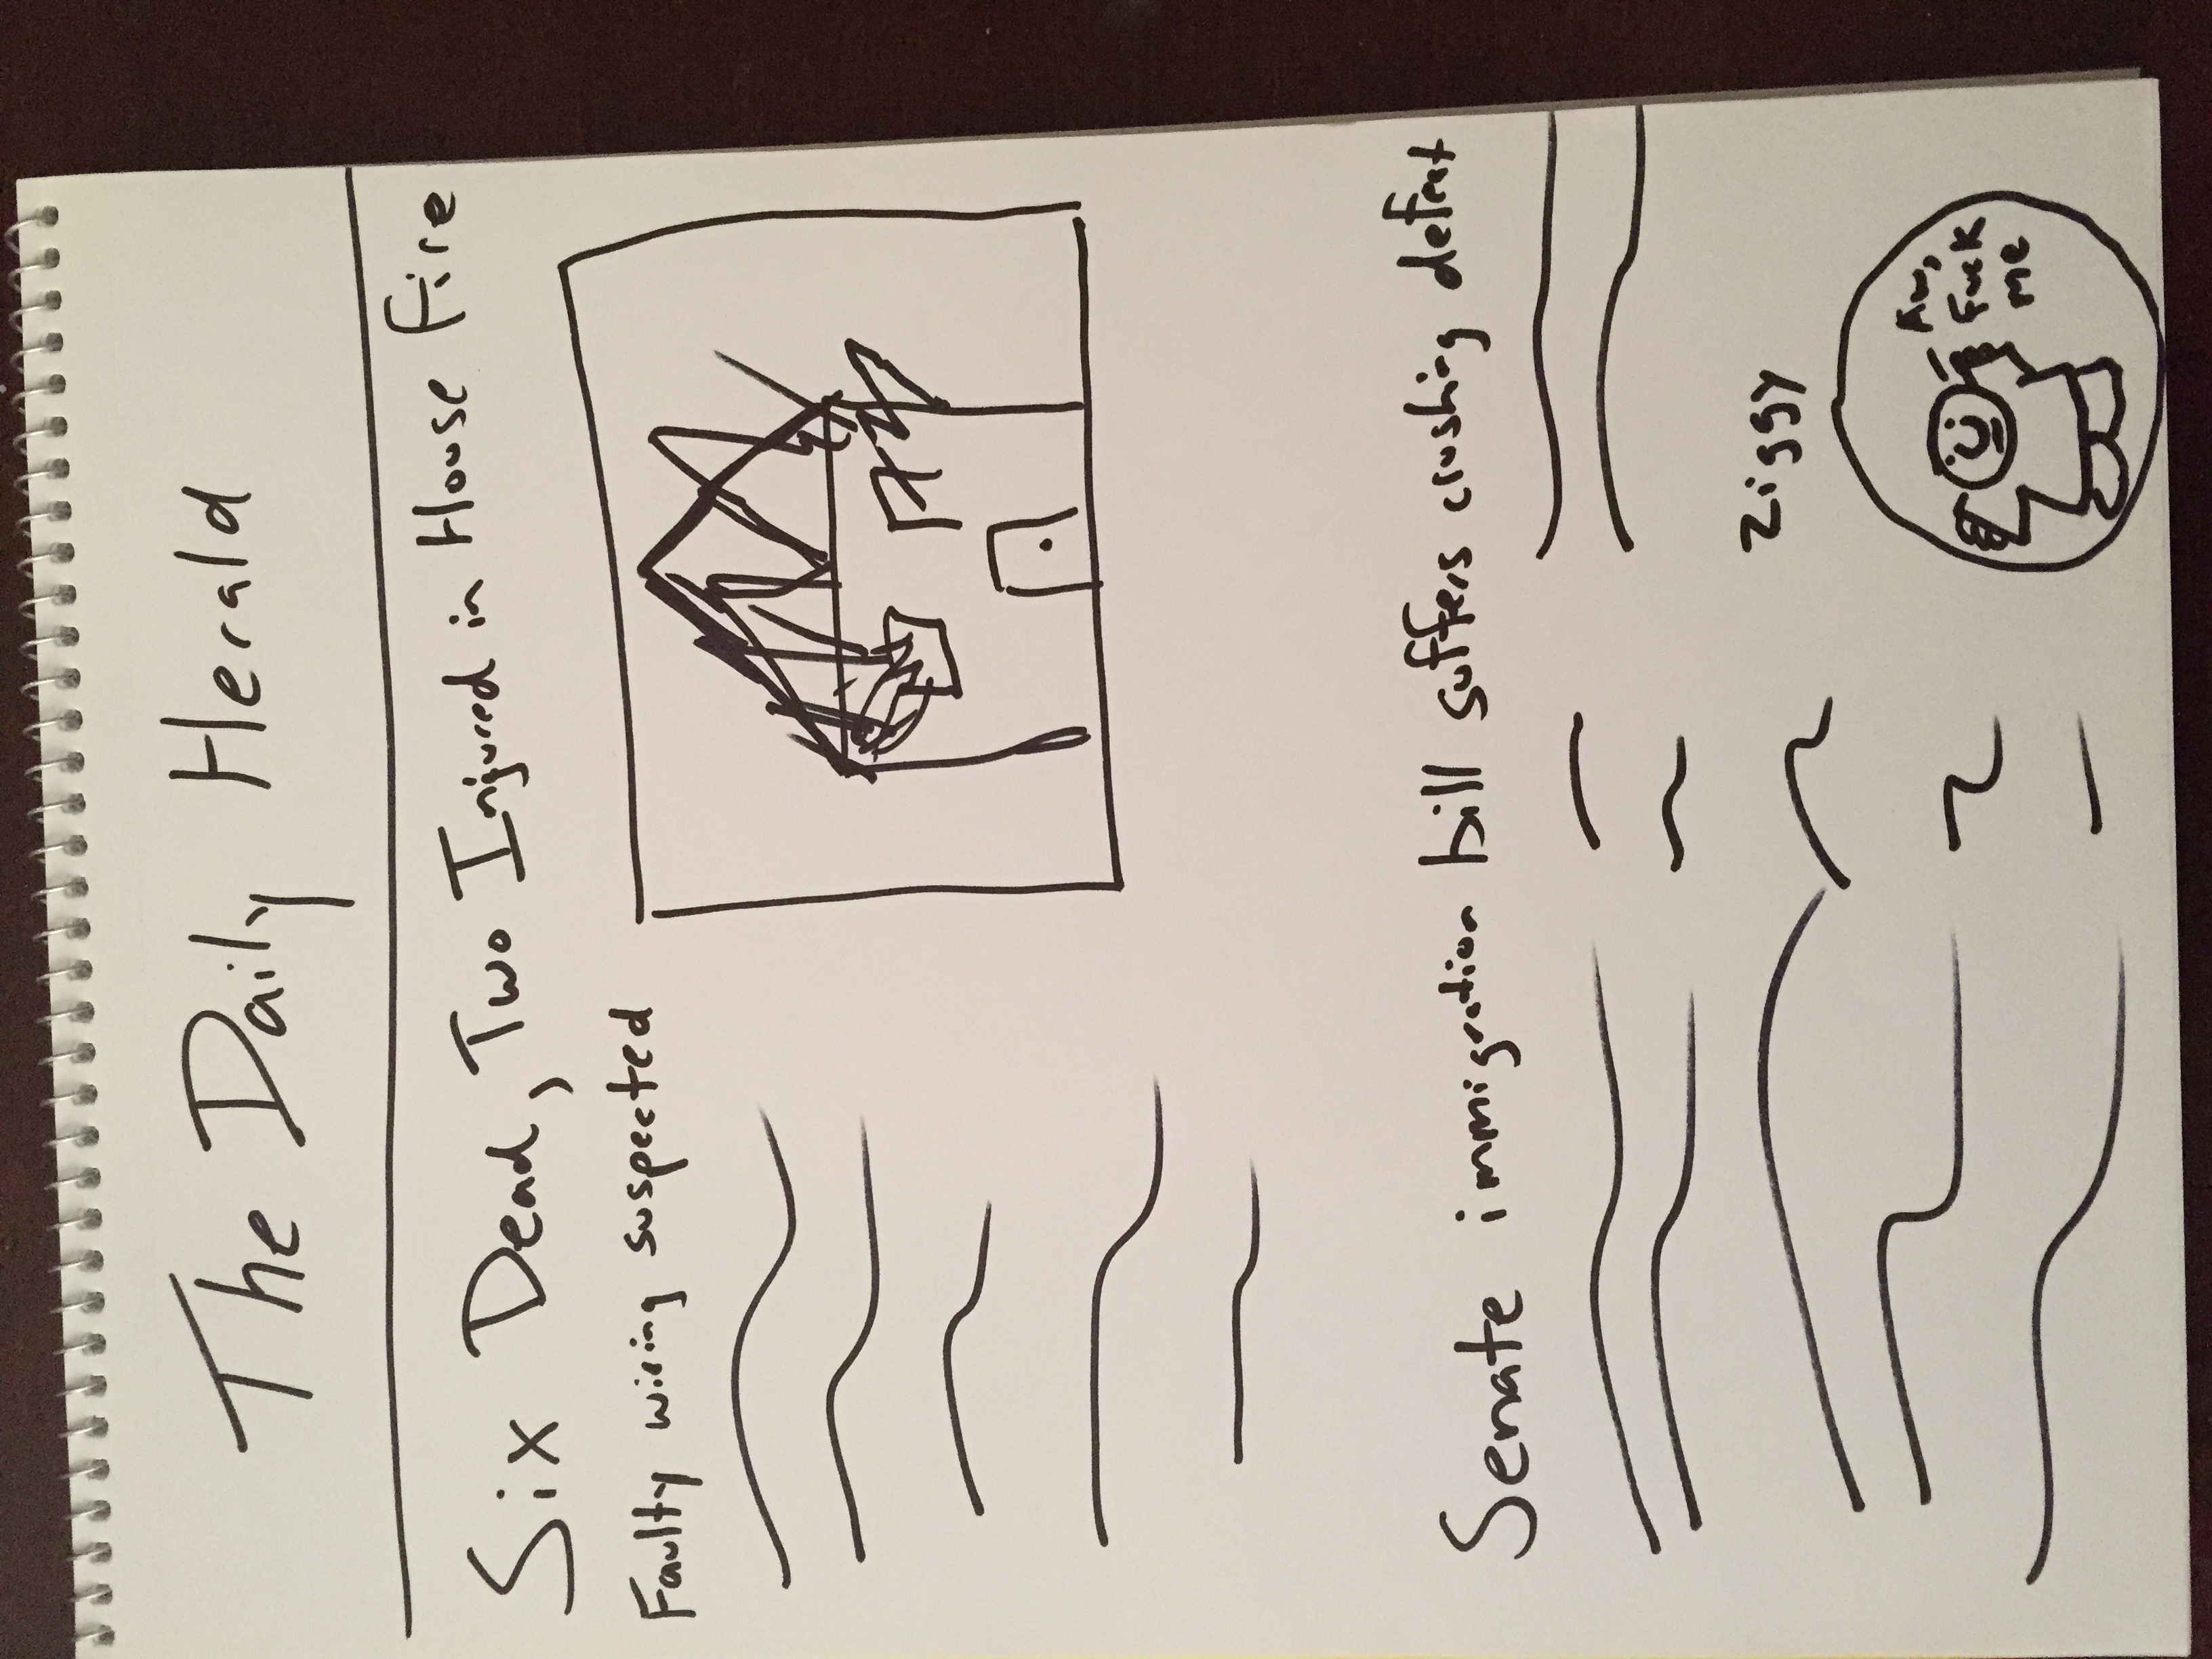 The Daily Herald
Six Dead, Two Injured in House Fire
Faulty wiring suspected
Senate immigration bill suffers crushing defeat
Ziggy
Aw,
Fuck
me